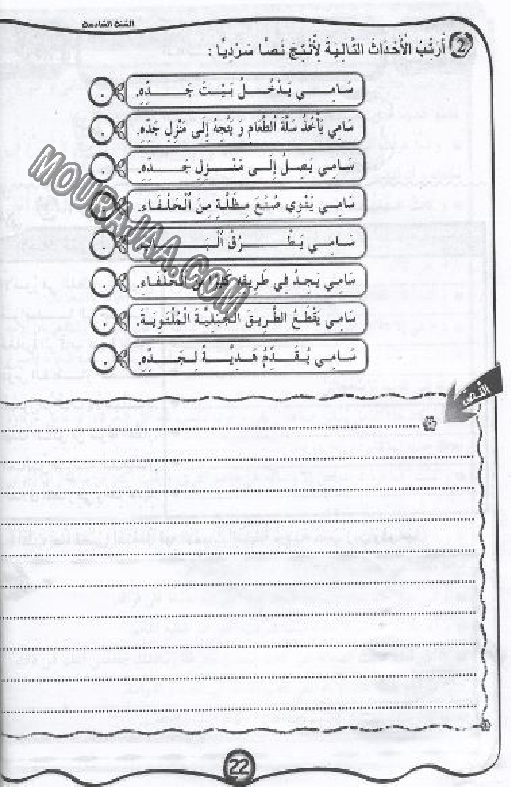 السنة السادسة
2 أُرَتِّبُ الْأَحْدَاثَ التَّالِيَةَ لِأُنْتِجَ نَصًّا سَرْدِيًّا :
سَامِي يَدْخُلُ بَيْتَ جَدِّهِ.
سَامِي يَأْخُذُ سَلَّةَ الطَّعَامِ وَ يَتَّجِهُ إِلَى مَنْزِلِ جَدِّهِ.
سَامِي يَصِلُ إِلَى مَنْزِلِ جَدِّهِ.
سَامِي يَنْوِي صُنْعَ مِظَلَّةٍ مِنَ الْحَلْفَاءِ.
سَامِي يَطْرُقُ
سَامِي يَجِدُ فِي طَرِيقِهِ الْحَلْفَاءِ.
سَامِي يَقْطَعُ الطَّرِيقَ الْجَبَلِيَّةَ الْمُلْتَوِيَةَ.
سَامِي يُقَدِّمُ هَدِيَّةً لِجَدِّهِ.
MOURAJAA.COM
النّصّ
22